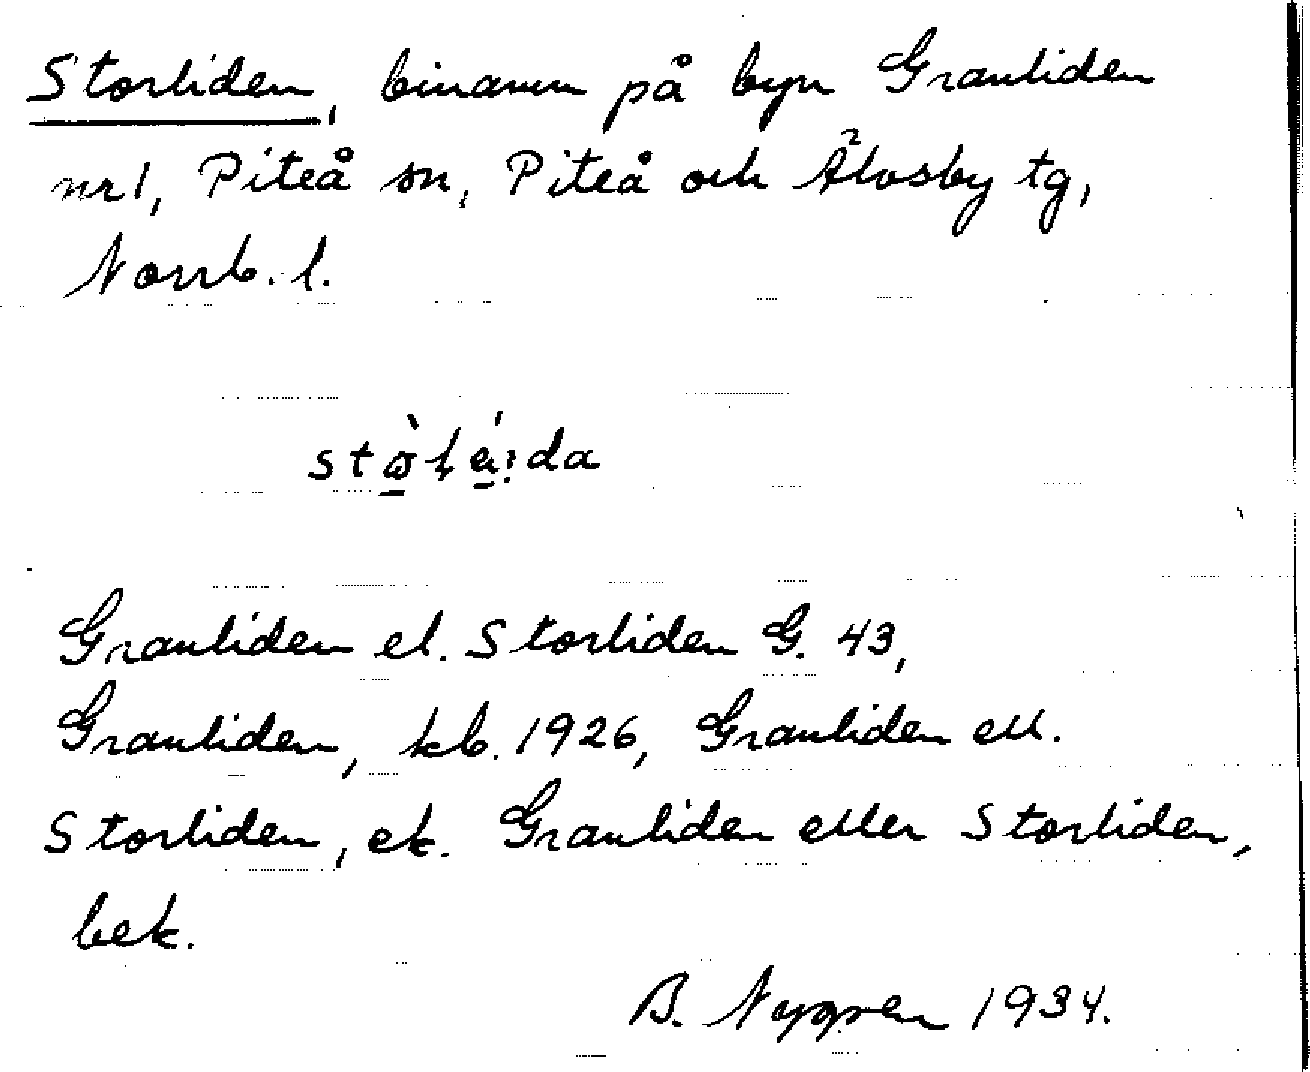 Storliden, binamn på byn Granliden
nr 1, Piteå sn, Piteå och Älvsby tg,
Norrb. l.
Granliden el. Storliden G. 43,
Granliden, kb. 1926, Granliden ell.
Storliden, ek. Granliden eller Storliden,
bek.
B. Nygren 1934.